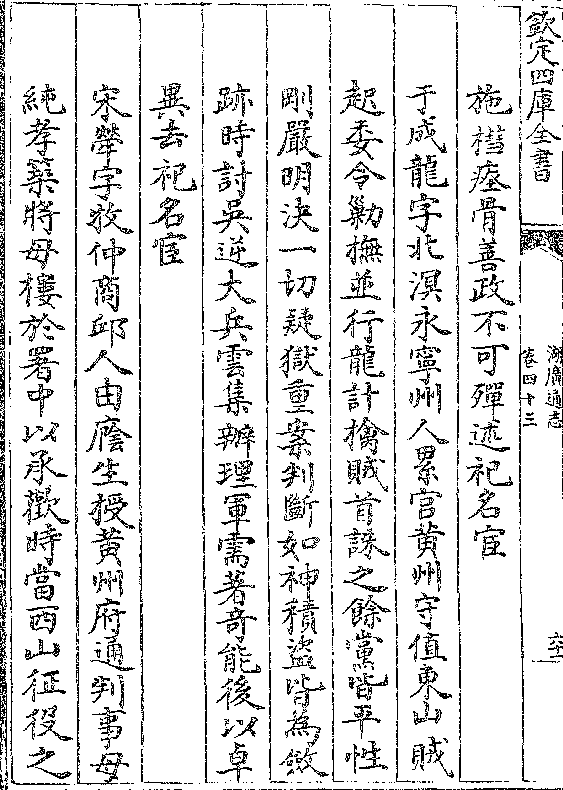 欽定四庫全書
湖廣通志
卷四十三
六十一
施槥瘞骨善政不可殫述祀名宦
于成龍字北溟永寧州人累官黄州守值東山賊
起委令勦撫並行龍計擒賊首誅之餘黨皆平性
剛嚴明決一切疑獄重案判斷如神積盜皆為斂
跡時討吳逆大兵雲集辦理軍需著奇能後以卓
異去祀名宦
宋犖字牧仲商邱人由廕生授黄州府通判事母
純孝築將母樓於署中以承歡時當西山征役之